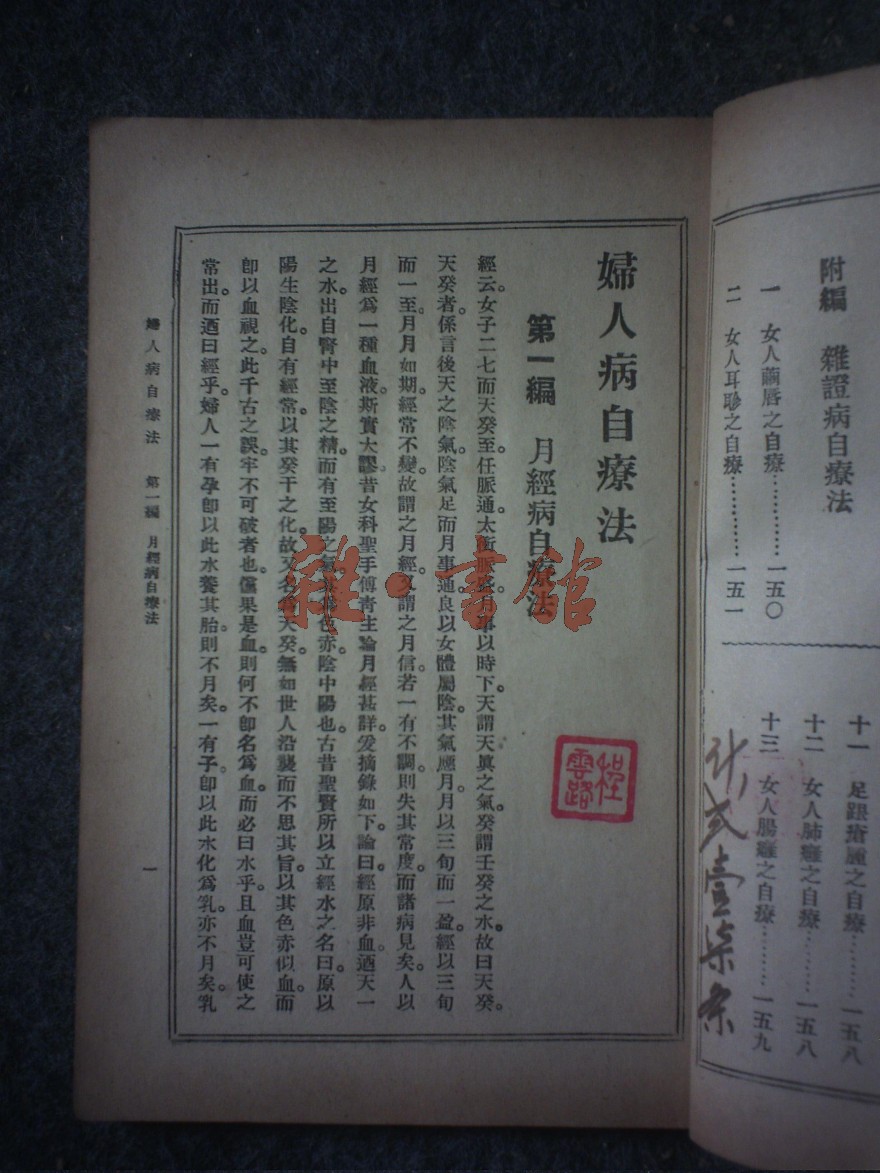 附編　雜證病自療法
一　女人繭唇之自療…………一五〇
二　女人耳聤之自療…………一五一
十一　足跟瘡腫之自療………一五八
十二　女人肺癰之自療………一五八
十三　女人腸癰之自療………一五九
婦人病自療法
第一編　月經病自療法
經云。女子二七而天癸至。任脈通。太衝脈盛。月事以時下。天謂天眞之氣。癸謂壬癸之水。故曰天癸。
天癸者。係言後天之陰氣。陰氣足而月事通。良以女體屬陰。其氣應月。月以三旬而一盈。經以三旬
而一至。月月如期。經常不變。故謂之月經。又謂之月信。若一有不調。則失其常度。而諸病見矣。人以
月經爲一種血液。斯實大謬。昔女科聖手傅靑主論月經甚詳。爰摘錄如下。論曰。經原非血。迺天一
之水。出自腎中。至陰之精。而有至陽之氣。故其色赤。陰中陽也。古昔聖賢所以立經水之名曰。原以
陽生陰化。自有經常。以其癸干之化。故又名爲天癸。無如世人沿襲而不思其旨。以其色赤似血。而
卽以血視之。此千古之誤。牢不可破者也。儻果是血。則何不卽名爲血。而必曰水乎。且血豈可使之
常出。而迺曰經乎。婦人一有孕。卽以此水養其胎。則不月矣。一有子。卽以此水化爲乳。亦不月矣。乳
婦人病自療法　第一編　月經病自療法
一
雜·書館
程雲路